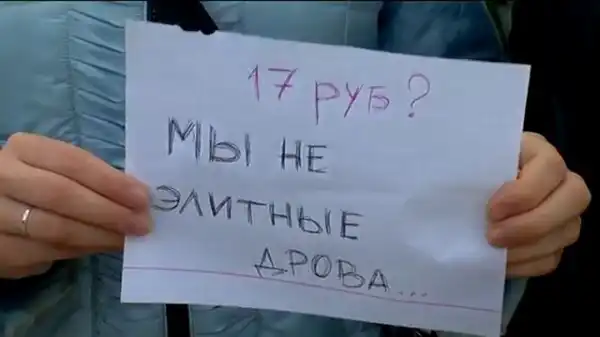 17 РУБ?
МЫ НЕ
ЭЛИТНЫЕ
ДРОВА...